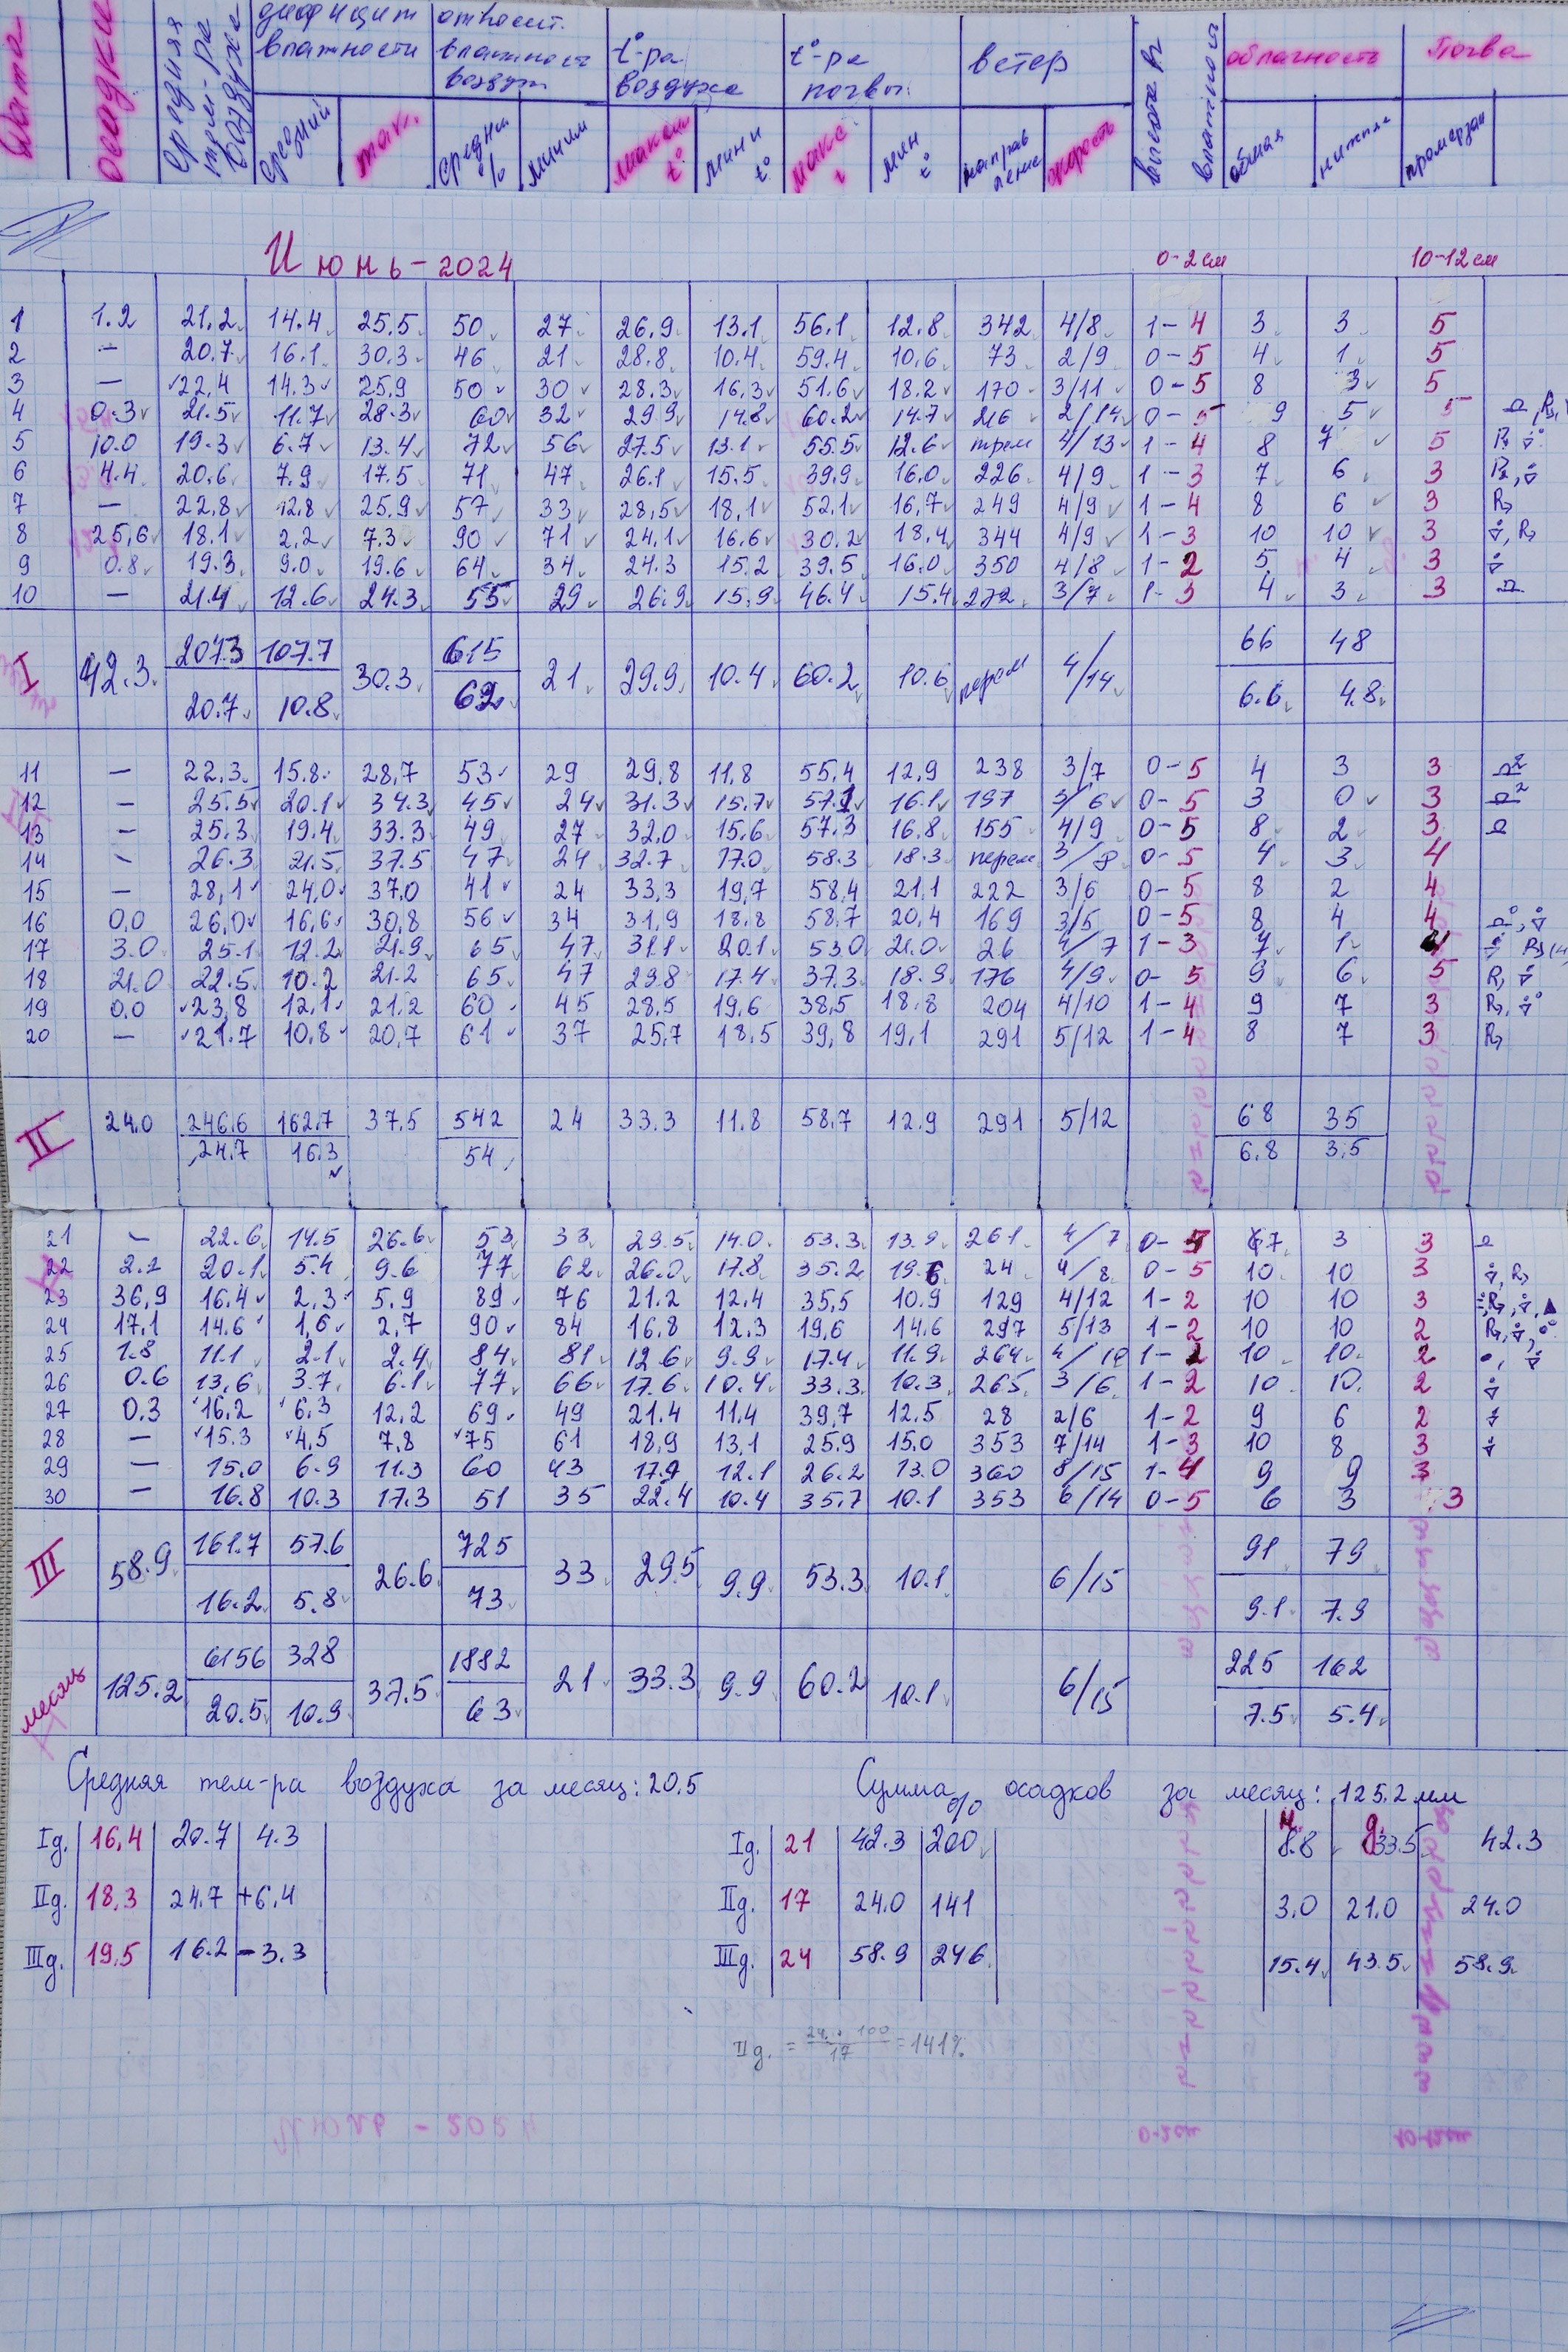 Дата осадки Средняя тем-ра воздуха дифицит влажности относит. влажность воздух t°-ра воздуха t°-ра почвы ветер облачность Почва
средний макс. средн % миним максим t° мини t° макс t мин t° направление скорость общая нижняя промерзан
Июнь-2024 0-2см 10-12см
1 1.2 21,2 14.4 25.5 50 27 26.9 13.1 56.1 12.8 342 4/8 1-4 3 3 5
2 — 20.7 16.1 30.3 46 21 28.8 10.4 59.4 10.6 73 2/9 0-5 4 1 5
3 — 22,4 14.3 25.9 50 30 28.3 16.3 51.6 18.2 170 3/11 0-5 8 3 5
4 0.3 21.5 11.7 28.3 60 32 29.9 14.8 60.2 14.7 216 2/14 0-5 9 5 5
5 10.0 19.3 6.7 13.4 72 56 27.5 13.1 55.5 12.6 4/13 1-4 8 7 5
6 4.4 20.6 7.9 17.5 71 47 26.1 15.5 39.9 16.0 226 4/9 1-3 7 6 3
7 — 22,8 12.8 25.9 57 33 28,5 18,1 52.1 16,7 249 4/9 1-4 8 6 3
8 25,6 18.1 2,2 7.3 90 71 24,1 16.6 30.2 18,4 344 4/9 1-3 10 10 3
9 0.8 19.3 9.0 19.6 64 34 24.3 15.2 39.5 16.0 350 4/8 1-2 5 4 3
10 — 21.4 12.6 24.3 55 29 26.9 15.9 46.4 15.4 272 3/7 1-3 4 3 3
I 42.3 207.3 107.7 30.3 615 21 29.9 10.4 60.2 10.6 перем 4/14 66 48
20.7 10.8 62 6.6 4.8
11 — 22,3 15.8 28,7 53 29 29.8 11.8 55.4 12,9 238 3/7 0-5 4 3 3
12 — 25.5 20.1 34.3 45 24 31.3 15.7 57.1 16.1 197 3/6 0-5 3 0 3
13 — 25.3 19.4 33.3 49 27 32,0 15.6 57.3 16.8 155 4/9 0-5 8 2 3
14 — 26.3 21.5 37.5 47 24 32.7 17.0 58.3 18.3 перем 3/8 0-5 4 3 4
15 — 28,1 24,0 37,0 41 24 33,3 19,7 58,4 21,1 222 3/6 0-5 8 2 4
16 0,0 26,0 16,6 30,8 56 34 31,9 18.8 58.7 20,4 169 3/5 0-5 8 4 4
17 3.0 25.1 12.2 21.9 65 47 31.1 20.1 53.0 21.0 26 4/7 1-3 7 1
18 21.0 22.5 10.2 21.2 65 47 29.8 17.4 37.3 18.9 176 4/9 0-5 9 6 5
19 0,0 23,8 12,1 21,2 60 45 28,5 19,6 38,5 18.8 204 4/10 1-4 9 7 3
20 — 21.7 10,8 20,7 61 37 25,7 18,5 39,8 19,1 291 5/12 1-4 8 7 3
II 24.0 246.6 162.7 37.5 542 24 33.3 11.8 58.7 12.9 291 5/12 68 35
24.7 16.3 54 6.8 3.5
21 — 22.6 14.5 26.6 53 33 29.5 14.0 53.3 13.9 261 4/7 0- 7 3 3
22 2.2 20.1 5.4 9.6 77 62 26.0 17.8 35.2 19.6 24 4/8 0-5 10 10 3
23 36,9 16.4 2,3 5.9 89 76 21.2 12.4 35,5 10.9 129 4/12 1-2 10 10 3
24 17,1 14.6 1,6 2,7 90 84 16,8 12.3 19,6 14.6 297 5/13 1-2 10 10 2
25 1.8 11.1 2.1 2.4 84 81 12.6 9.9 17.4 11.9 264 1-2 10 10 2
26 0.6 13,6 3.7 6.1 77 66 17.6 10.4 33.3 10.3 265 3/6 1-2 10 10 2
27 0.3 16,2 6,3 12,2 69 49 21.4 11,4 39,7 12.5 28 2/6 1-2 9 6 2
28 — 15.3 4,5 7,8 75 61 18,9 13,1 25.9 15.0 353 7/14 1-3 10 8 3
29 — 15.0 6.9 11.3 60 43 17.9 12.1 26.2 13.0 360 8/15 1-4 9 9 3
30 — 16.8 10.3 17.3 51 35 22.4 10.4 35.7 10.1 353 6/14 0-5 6 3 3
III 58.9 161.7 57.6 26.6 725 33 29.5 9.9 53.3 10.1 6/15 91 79
16.2 5.8 73 9.1 7.9
месяц 125.2 6156 328 37.5 1882 21 33.3 9.9 60.2 10.1 6/15 225 162
20.5 10.9 63 7.5 5.4
Средняя тем-ра воздуха за месяц: 20.5 Сумма осадков за месяц: 125.2 мм
%
Iд. 16,4 20.7 4.3 Iд. 21 42.3 200 8.8 33.5 42.3
IIд. 18,3 24.7 +6,4 IIд. 17 24.0 141 3.0 21.0 24.0
IIIд. 19,5 16.2 -3.3 IIIд. 24 58.9 246 15.4 43.5 58.9
IIд. = 24 · 100 / 17 = 141%